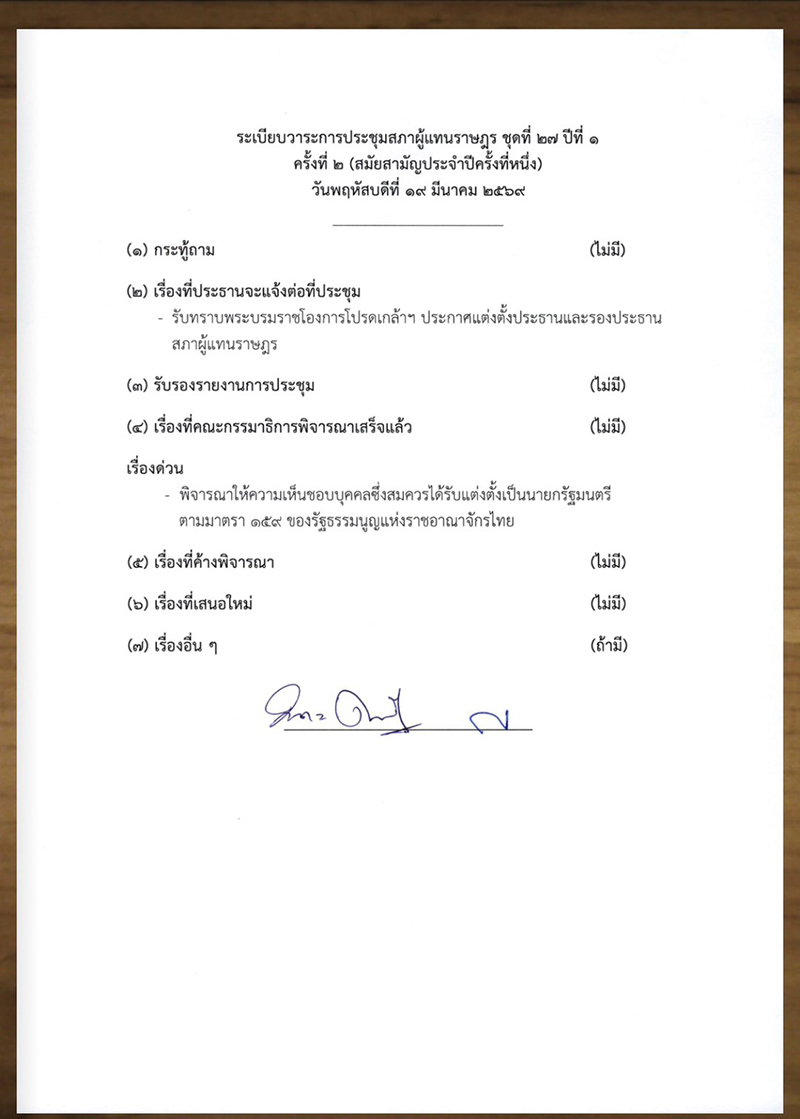 ระเบียบวาระการประชุมสภาผู้แทนราษฎร ชุดที่ ๒๗ ปีที่ ๑
ครั้งที่ ๒ (สมัยสามัญประจำปีครั้งที่หนึ่ง)
วันพฤหัสบดีที่ ๑๙ มีนาคม ๒๕๖๙
(๑) กระทู้ถาม (ไม่มี)
(๒) เรื่องที่ประธานจะแจ้งต่อที่ประชุม
- รับทราบพระบรมราชโองการโปรดเกล้าฯ ประกาศแต่งตั้งประธานและรองประธาน
สภาผู้แทนราษฎร
(๓) รับรองรายงานการประชุม (ไม่มี)
(๔) เรื่องที่คณะกรรมาธิการพิจารณาเสร็จแล้ว (ไม่มี)
เรื่องด่วน
- พิจารณาให้ความเห็นชอบบุคคลซึ่งสมควรได้รับแต่งตั้งเป็นนายกรัฐมนตรี
ตามมาตรา ๑๕๙ ของรัฐธรรมนูญแห่งราชอาณาจักรไทย
(๕) เรื่องที่ค้างพิจารณา (ไม่มี)
(๖) เรื่องที่เสนอใหม่ (ไม่มี)
(๗) เรื่องอื่น ๆ (ถ้ามี)